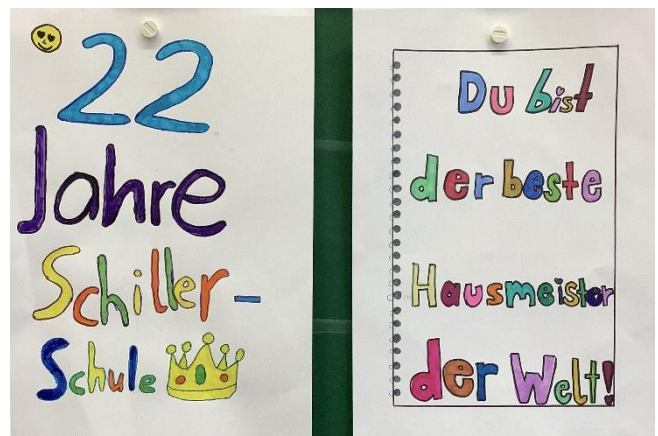 22
Jahre
Schiller-
Schule
Du bist
der beste
Hausmeister
der Welt!